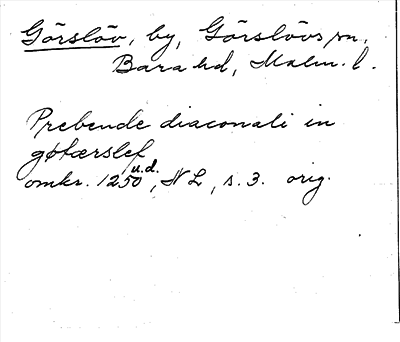 Görslöv, by, Görslövs sn,
Bara hd, Malm. l.
Prebende diaconali in
gøtærslef
u.d.
omkr. 1250, NL, s. 3. orig.